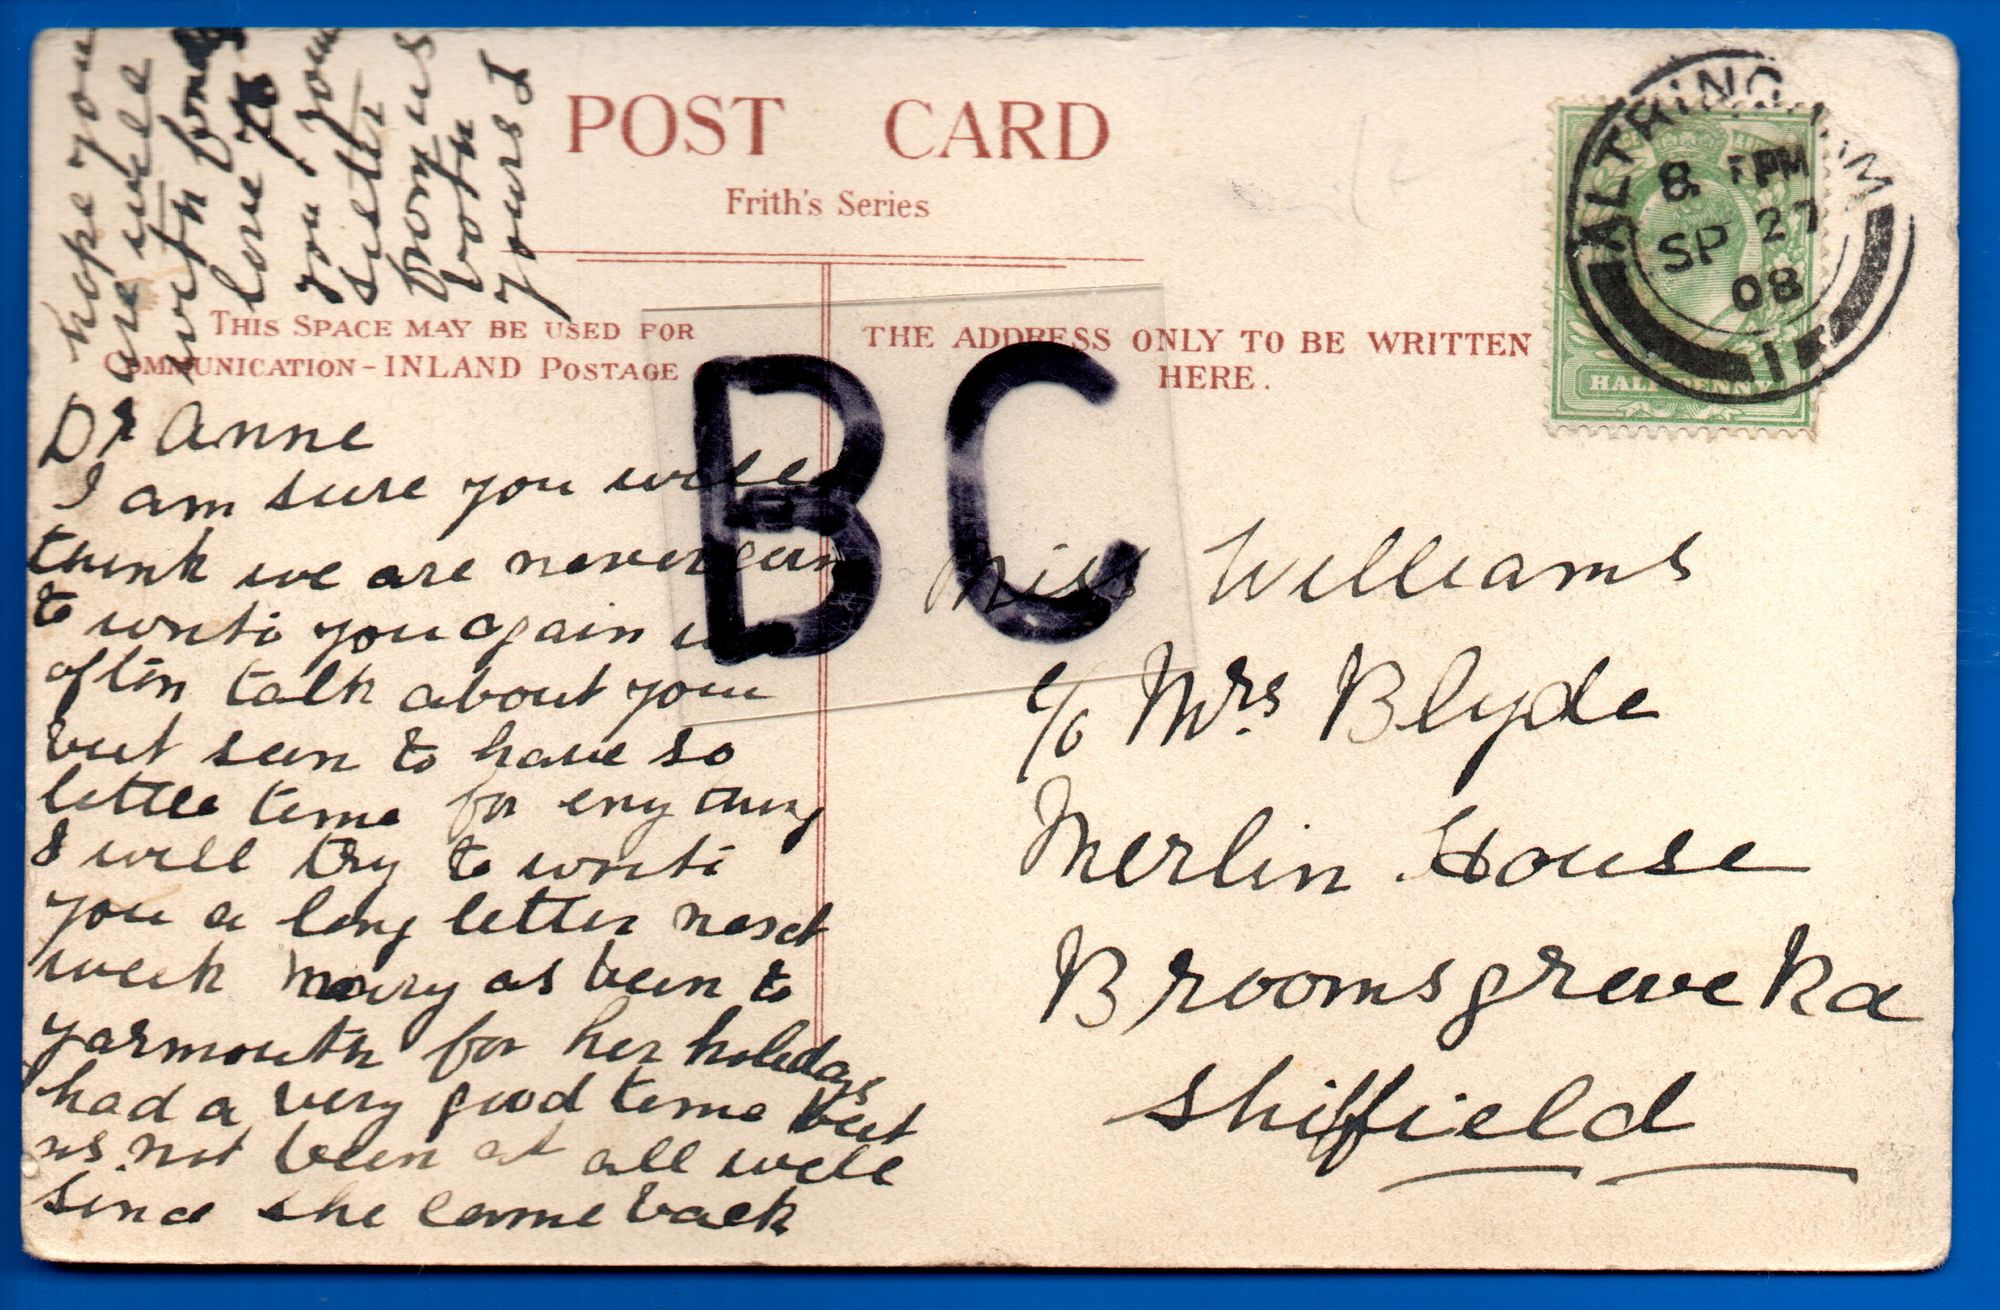 POST CARD
Frith's Series
THIS SPACE MAY BE USED FOR
COMMUNICATION - INLAND POSTAGE
THE ADDRESS ONLY TO BE WRITTEN
HERE.
ALTRINCHAM
8 PM
SP 27
08
1
HALFPENNY
BC
Dr Anne
I am sure you will
think we are never goin
to write you again we
often talk about you
but seem to have so
little time for eny thing
I will try to write
you a long letter next
week Mary as been to
yarmouth for her holidays
had a very good time but
as not been at all well
since she came back
hope you
are well
with fond
love to
you your
sister
from us
both
yours J
Miss Williams
c/o Mrs Blyde
Merlin House
Broomsgreve Rd
Shiffield